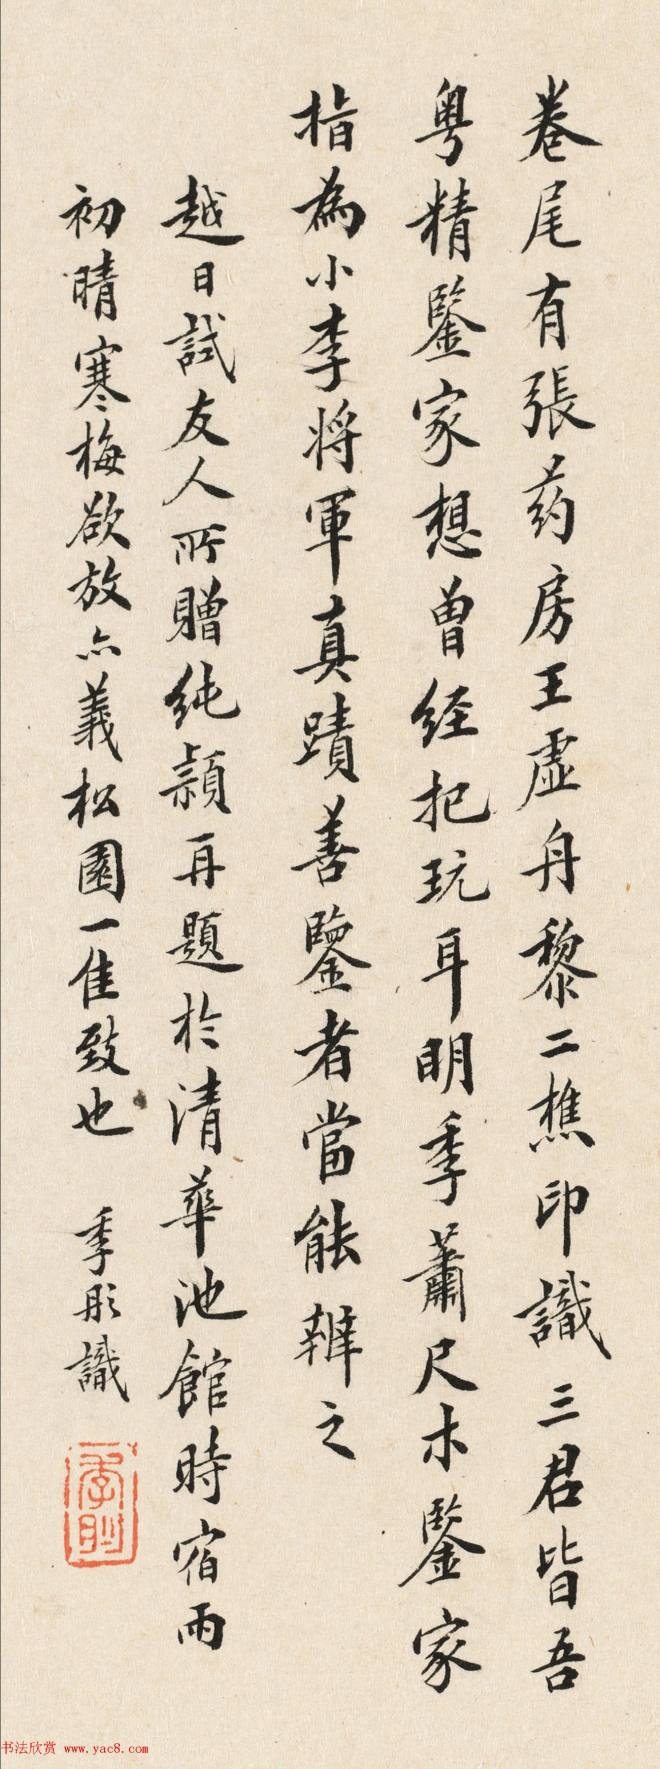 卷尾有張药房王虛舟黎二樵印識三君皆吾
粤精鑒家想曾經把玩耳明季蕭尺木鑒家
指為小李將軍真蹟善鑒者當能辨之
越日試友人所贈純穎再題於清華池館時宿雨
初晴寒梅欲放亦義松園一佳致也 季彤識
季彤
书法欣赏 www.yac8.com